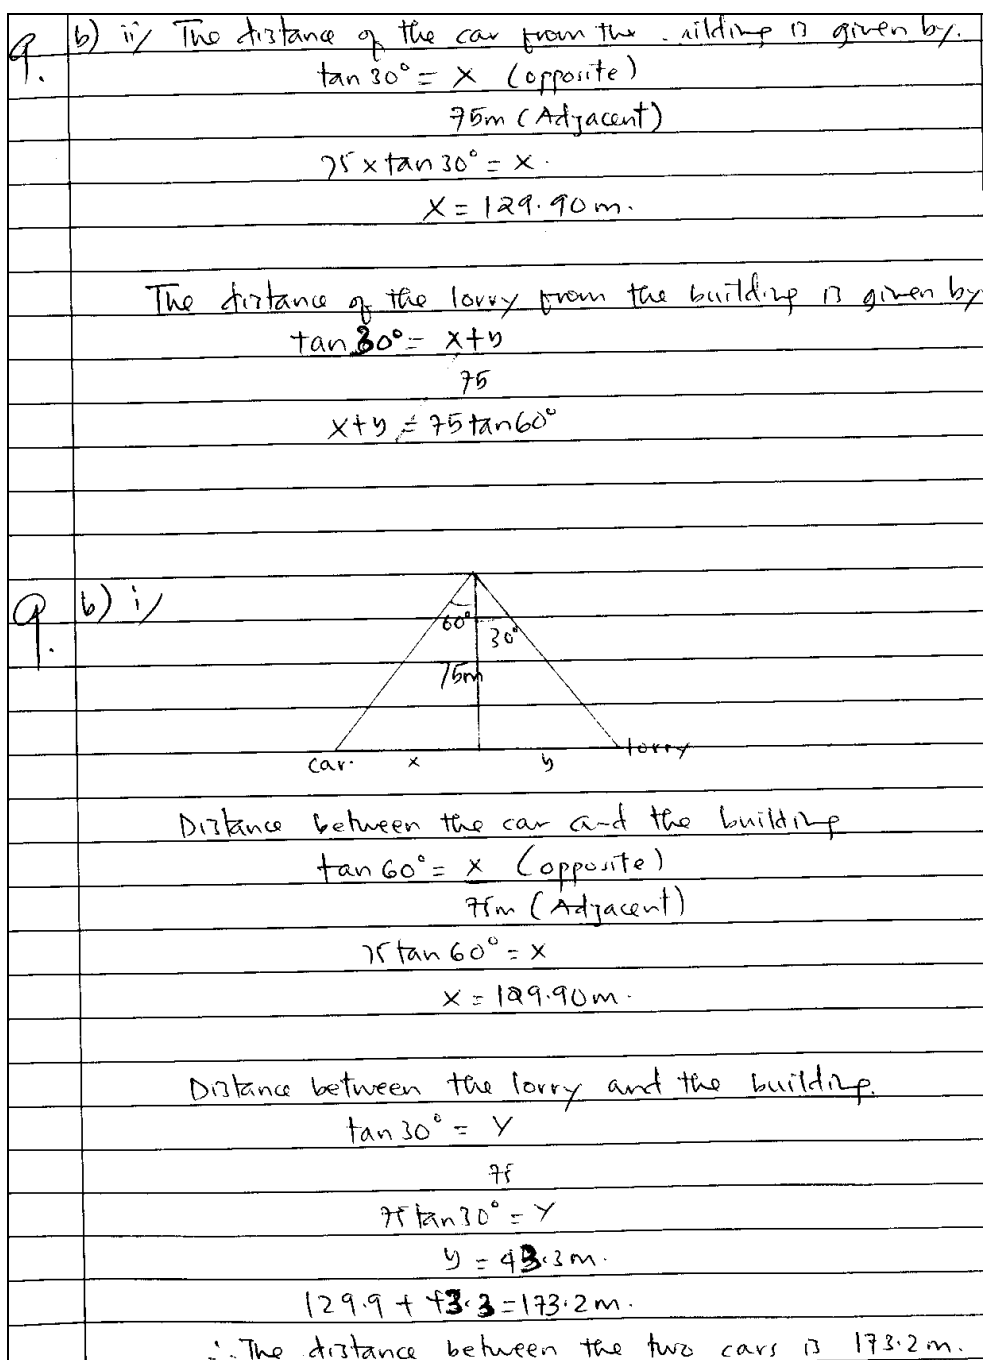 9. b) ii/ The distance of the car from the uilding is given by.
tan 30° = x (opposite)
75m (Adjacent)
75 x tan 30° = x.
x = 129.90m.
The distance of the lorry from the building is given by
tan 30° = x+y
75
x+y = 75 tan 60°
9. b) i/
60°
30°
75m
car. x y lorry
Distance between the car and the building
tan 60° = x (opposite)
75m (Adjacent)
75 tan 60° = x
x = 129.90m.
Distance between the lorry and the building.
tan 30° = Y
75
75 tan 30° = Y
y = 43.3m.
129.9 + 43.3 = 173.2m.
∴ The distance between the two cars is 173.2m.